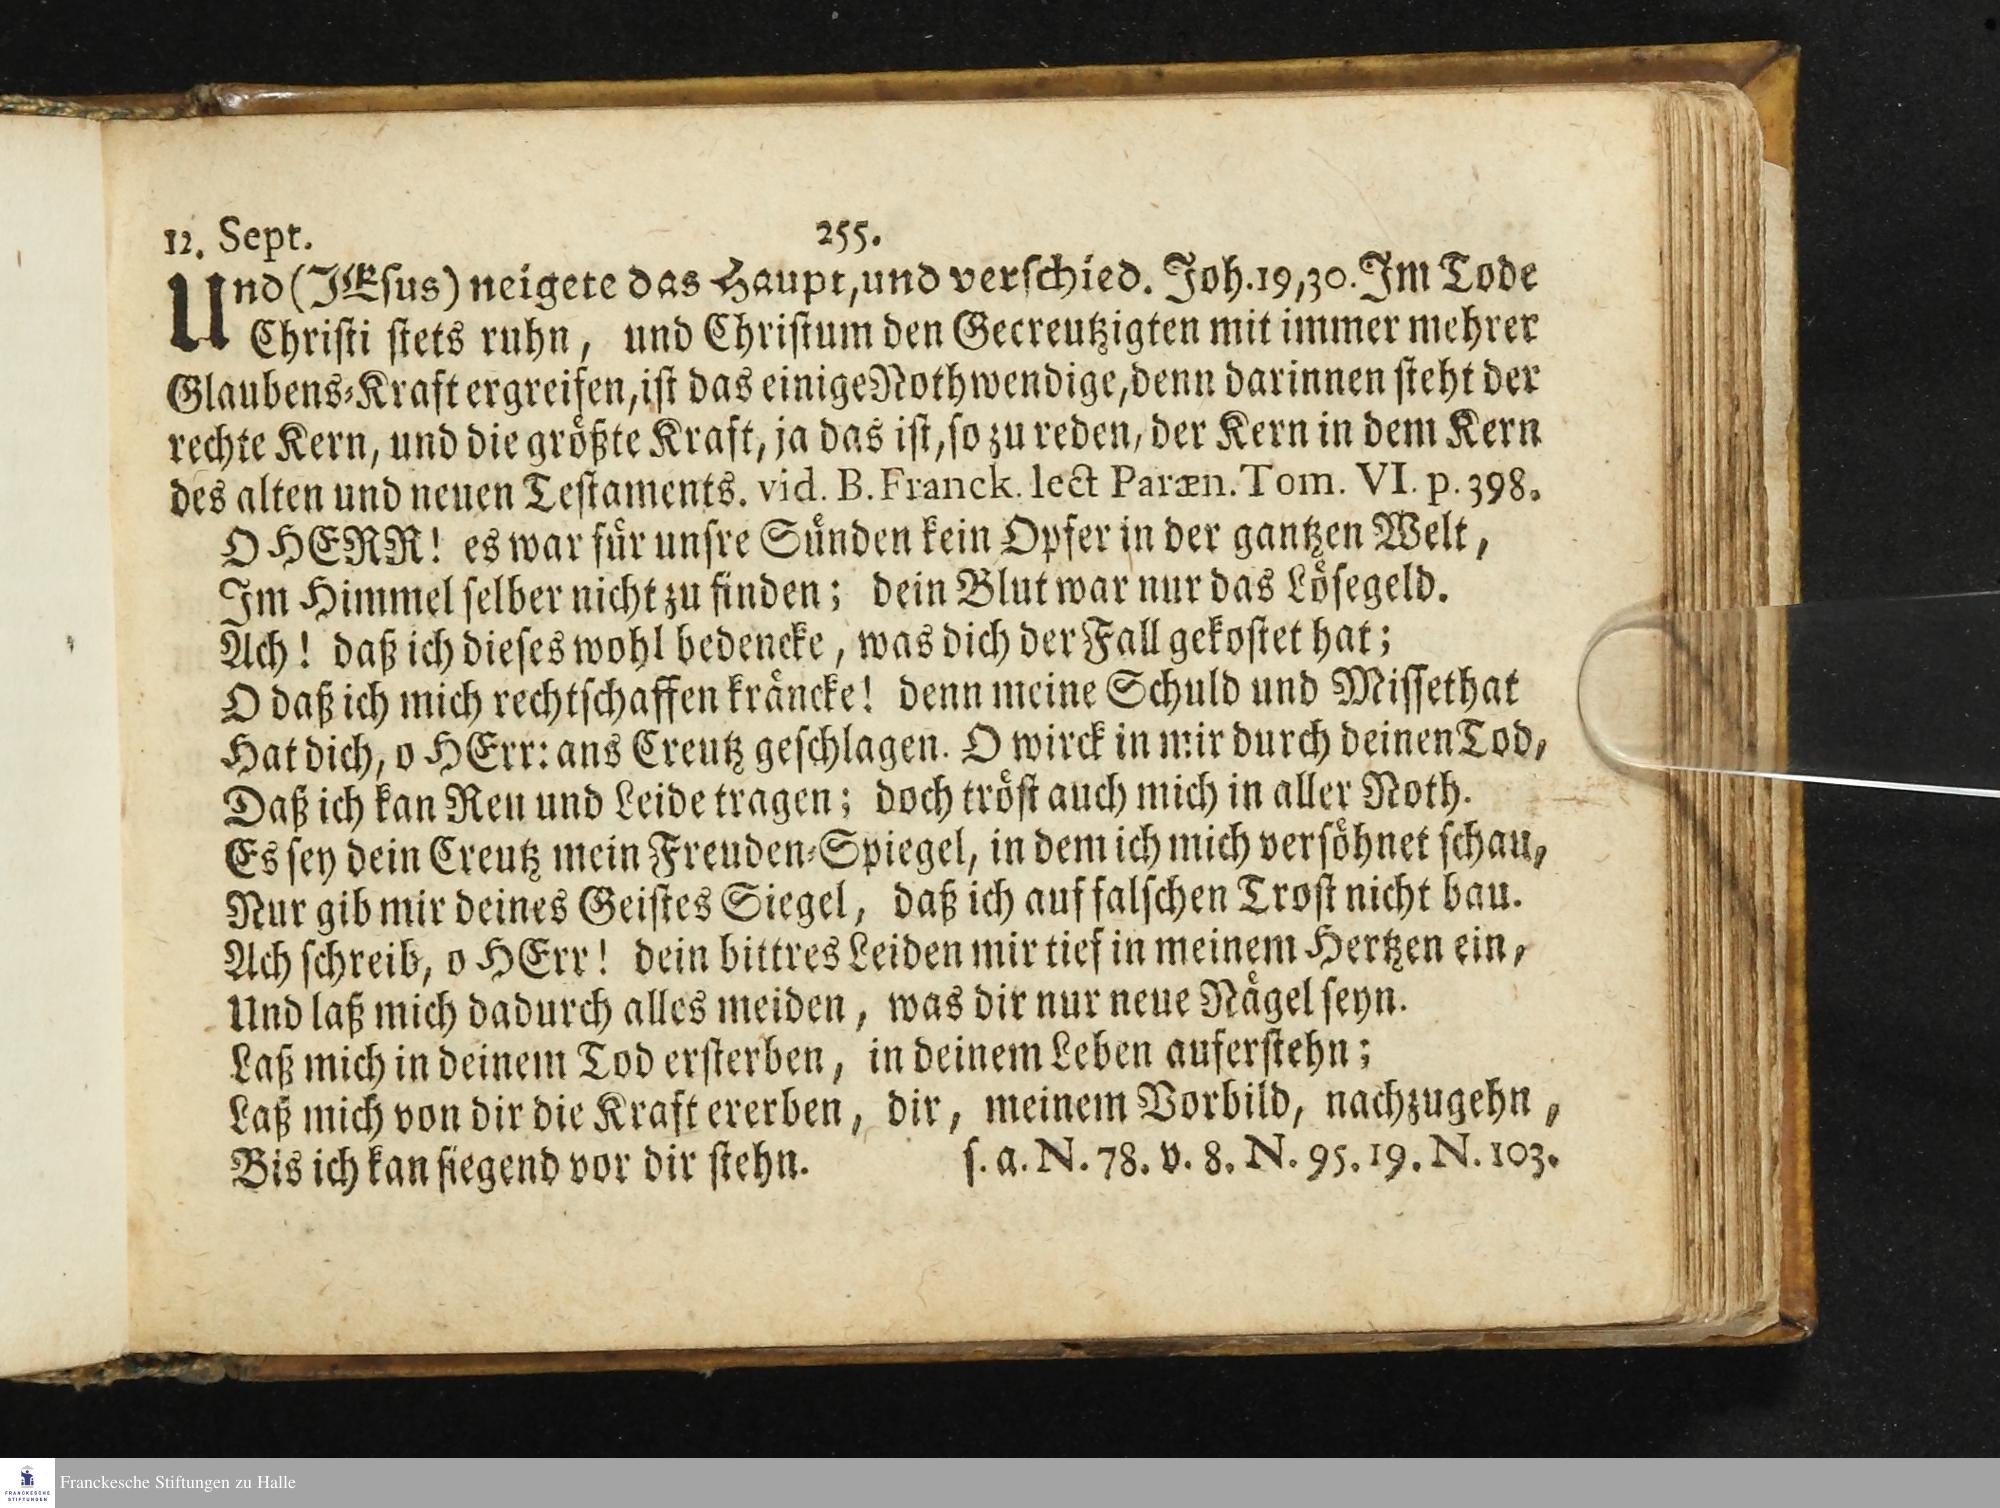 12. Sept. 255.
Und (JEsus) neigete das Haupt, und verschied. Joh. 19, 30. Im Tode
Christi stets ruhn, und Christum den Gecreutzigten mit immer mehrer
Glaubens-Kraft ergreifen, ist das einige Nothwendige, denn darinnen steht der
rechte Kern, und die größte Kraft, ja das ist, so zu reden, der Kern in dem Kern
des alten und neuen Testaments. vid. B. Franck. lect Paræn. Tom. VI. p. 398.
O HERR! es war für unsre Sünden kein Opfer in der gantzen Welt,
Im Himmel selber nicht zu finden; dein Blut war nur das Lösegeld.
Ach! daß ich dieses wohl bedencke, was dich der Fall gekostet hat;
O daß ich mich rechtschaffen kräncke! denn meine Schuld und Missethat
Hat dich, o HErr: ans Creutz geschlagen. O wirck in mir durch deinen Tod,
Daß ich kan Reu und Leide tragen; doch tröst auch mich in aller Noth.
Es sey dein Creutz mein Freuden-Spiegel, in dem ich mich versöhnet schau,
Nur gib mir deines Geistes Siegel, daß ich auf falschen Trost nicht bau.
Ach schreib, o HErr! dein bittres Leiden mir tief in meinem Hertzen ein,
Und laß mich dadurch alles meiden, was dir nur neue Nägel seyn.
Laß mich in deinem Tod ersterben, in deinem Leben auferstehn;
Laß mich von dir die Kraft ererben, dir, meinem Vorbild, nachzugehn,
Bis ich kan siegend vor dir stehn. s. a. N. 78. v. 8. N. 95. 19. N. 103.
FRANCKESCHE
STIFTUNGEN
Franckesche Stiftungen zu Halle